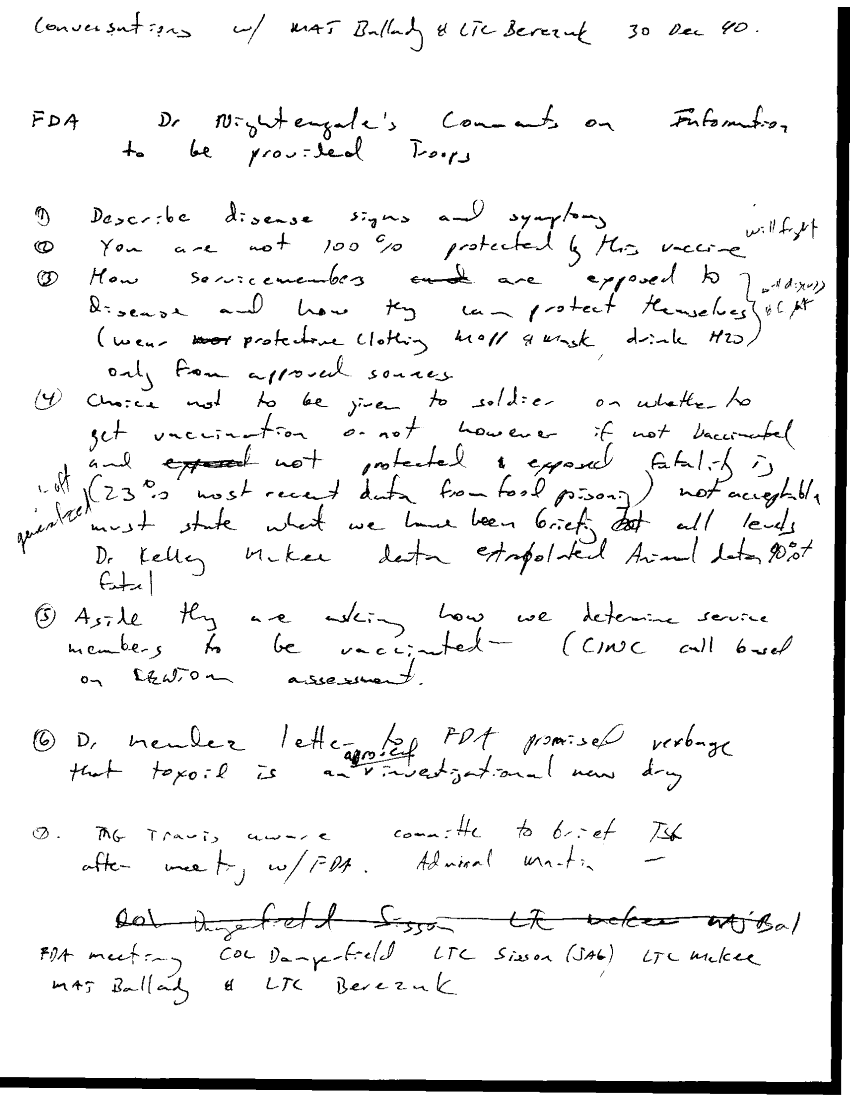 Conversations w/ MAJ Ballady & LTC Berezuk 30 Dec 90.
FDA Dr Nightengale's Comments on Information
to be provided Troops
① Describe disease signs and symptoms
② You are not 100% protected by this vaccine
will fight
③ How servicemembers are exposed to
disease and how they can protect themselves
(wear protective clothing MOPP & mask, drink H2O)
only from approved sources
④ Choice not to be given to soldier on whether to
get vaccination or not however if not vaccinated
and not protected & exposed fatality is
(23% is most recent data from food poisoning) not acceptable
must state what we have been briefing at all levels
Dr Kelley McKee data extrapolated Animal data 90%+
fatal
⑤ Aside they are asking how we determine service
members to be vaccinated — (CINC call based
on assessment.
⑥ Dr letter to FDA promised verbage
that toxoid is an approved investigational new drug
⑦. MG Travis aware committe to brief TSG
after meeting w/FDA. Admiral Martin —
COL Dangerfield Sisson LTC McKee MAJ Bal
FDA meeting COL Dangerfield LTC Sisson (JAG) LTC McKee
MAJ Ballady & LTC Berezuk